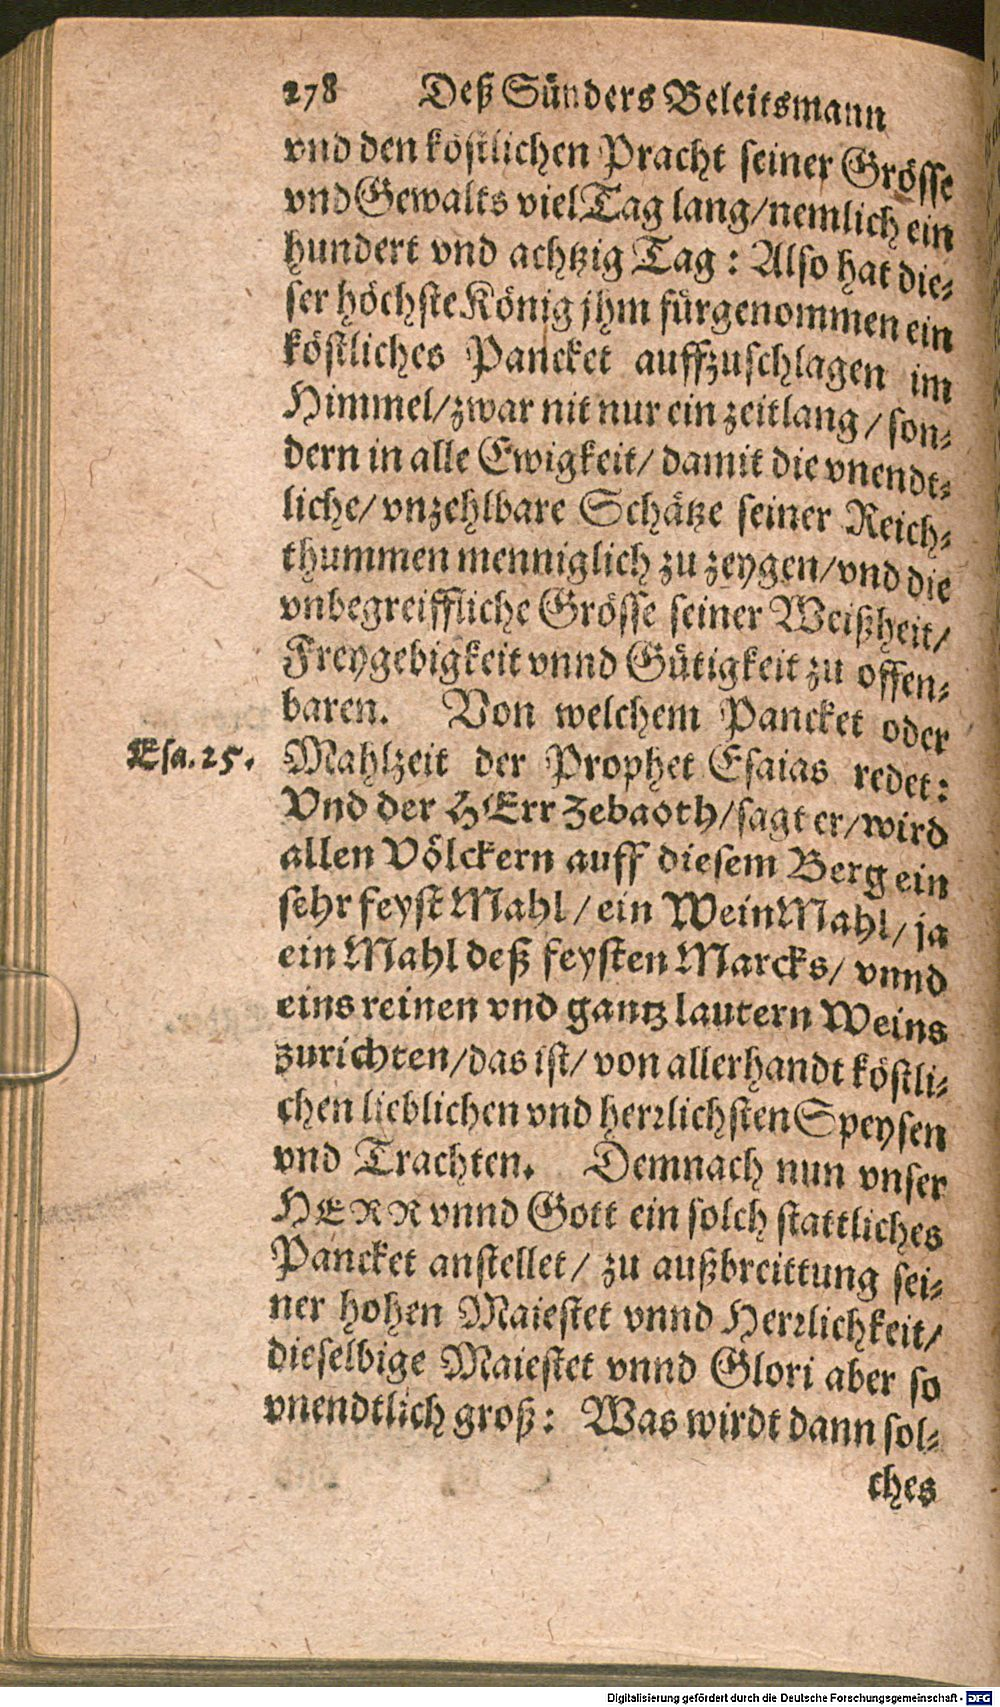 278 Deß Sünders Beleitsmann
vnd den köstlichen Pracht seiner Grösse
vnd Gewalts viel Tag lang/nemlich ein
hundert vnd achtzig Tag: Also hat die-
ser höchste König jhm fürgenommen ein
köstliches Pancket auffzuschlagen im
Himmel/zwar nit nur ein zeitlang/son-
dern in alle Ewigkeit/damit die vnendt-
liche/vnzehlbare Schätze seiner Reich-
thummen menniglich zu zeygen/vnd die
vnbegreiffliche Grösse seiner Weißheit/
Freygebigkeit vnnd Gütigkeit zu offen-
baren. Von welchem Pancket oder
Esa. 25. Mahlzeit der Prophet Esaias redet:
Vnd der HErr Zebaoth/sagt er/wird
allen Völckern auff diesem Berg ein
sehr feyst Mahl/ein WeinMahl/ja
ein Mahl deß feysten Marcks/vnnd
eins reinen vnd gantz lautern Weins
zurichten/das ist/von allerhandt köstli-
chen lieblichen vnd herrlichsten Speysen
vnd Trachten. Demnach nun vnser
HERR vnnd Gott ein solch stattliches
Pancket anstellet/zu außbreittung sei-
ner hohen Maiestet vnnd Herrlichkeit/
dieselbige Maiestet vnnd Glori aber so
vnendtlich groß: Was wirdt dann sol-
ches
Digitalisierung gefördert durch die Deutsche Forschungsgemeinschaft - DFG